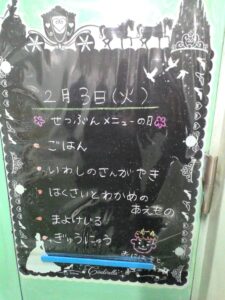 2月3日(火)
せつぶんメニューの日
ごはん
いわしのさんがやき
はくさいとわかめの
あえもの
まよけじる
ぎゅうにゅう
Cinderella